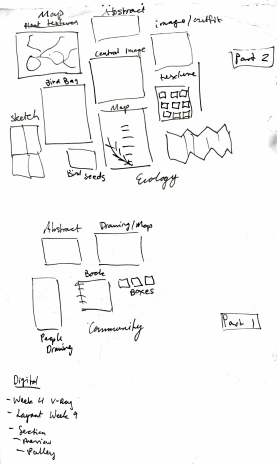 Map
Plant Features
Abstract
image/outfit
Central Image
Part 2
Bird Bag
Map
Sketch
Bird
Seeds
Ecology
Abstract
Drawing/Map
Book
Boxes
People
Drawing
Community
Part 1
Digital
- Week 4 V-Ray
- Layout Week 9
- Section
- Preview
- Pulley